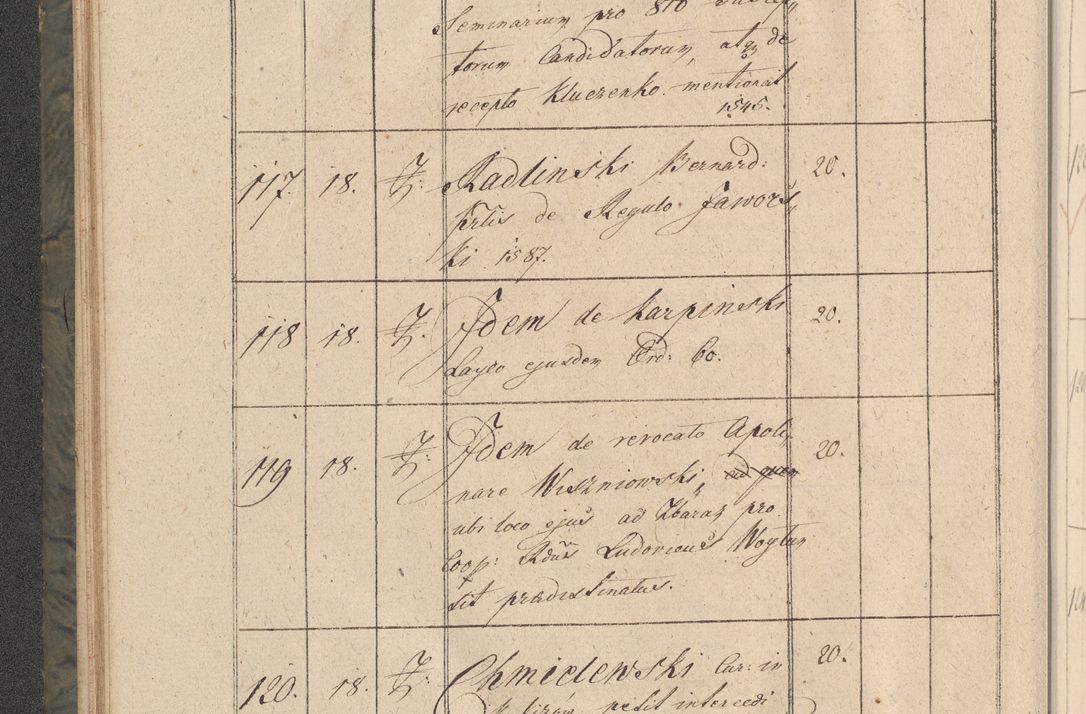 Seminarium pro 810
torum Candidatorum, atq de
recepto Kluczenko mentionat
1545.
117. 18. Radlinski Bernard: 20.
Prlis de Regulo Jawors„
ki 1587.
118 18. Idem de Karpinski 20.
Layco ejusdem Ord: Co.
119 18. Idem de revocato Apoli„ 20.
nare Wiszniowski, ad quem
ubi loco ejus ad Zbaraz pro
Coop: Rdus Ludovicus Woytun
sit praedistinatus.
120. 18. Chmielewski Cur: in 20.
petit intercedi